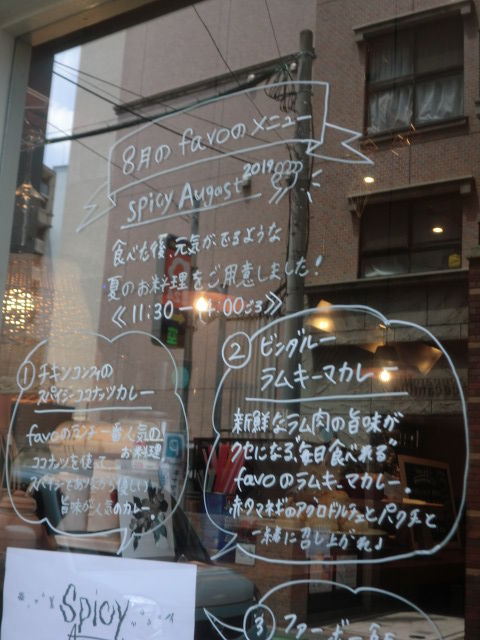 8月の favoのメニュー
spicy August 2019
食べた後、元気がでるような
夏のお料理をご用意しました!
《11:30-14:00ごろ》
① チキンコンフィの
スパイシーココナッツカレー
favoのランチ一番人気の!
お料理
ココナッツを使って
旨味が人気のカレー
② ビンダルー
ラムキーマカレー
新鮮なラム肉の旨味が
クセになる"毎日食べれる"
favoのラムキーマカレー。
赤タマネギのアグロドルチェとパクチーと
一緒に召し上がれ♪
Spicy
③ ファーボー